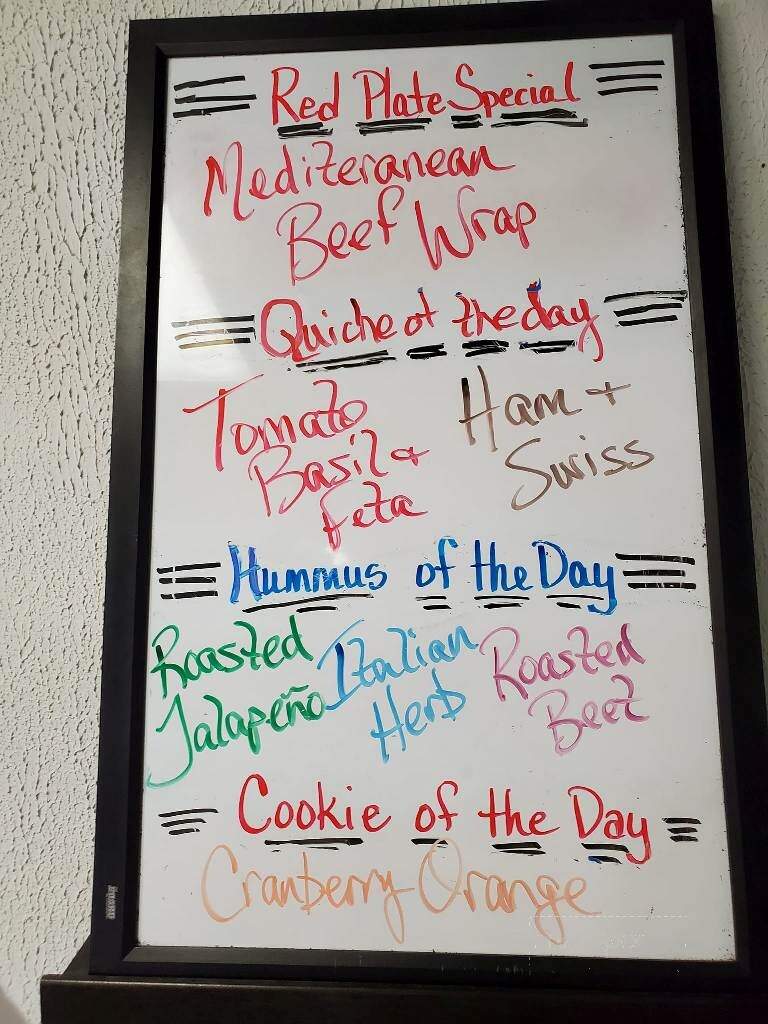 Red Plate Special
Mediteranean
Beef Wrap
Quiche of the day
Tomato
Basil +
feta
Ham +
Swiss
Hummus of the Day
Roasted
Jalapeño
Italian
Herb
Roasted
Beet
Cookie of the Day
Cranberry Orange